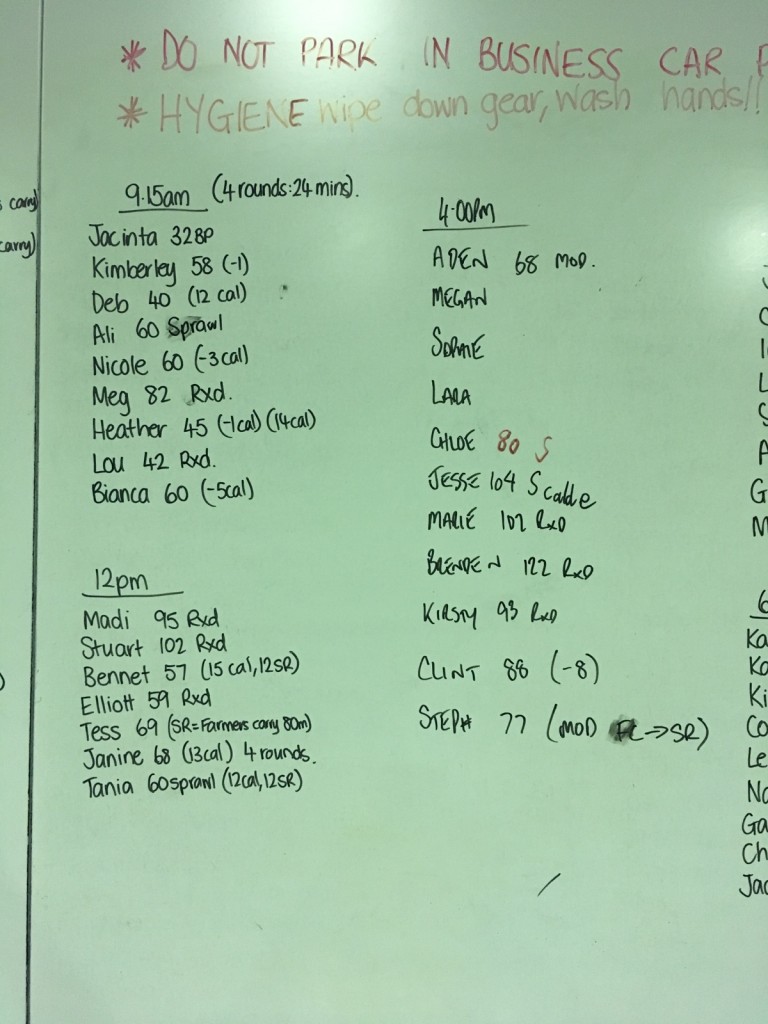 * DO NOT PARK IN BUSINESS CAR P
* HYGIENE wipe down gear, wash hands!!
carry)
carry)
9.15am (4 rounds:24 mins).
Jacinta 32BP
Kimberley 58 (-1)
Deb 40 (12 cal)
Ali 60 Sprawl
Nicole 60 (-3cal)
Meg 82 Rxd.
Heather 45 (-1cal) (14cal)
Lou 42 Rxd.
Bianca 60 (-5cal)
12pm
Madi 95 Rxd
Stuart 102 Rxd
Bennet 57 (15 cal, 12SR)
Elliott 59 Rxd
Tess 69 (SR=Farmers carry 80m)
Janine 68 (13cal) 4 rounds.
Tania 60 sprawl (12cal, 12SR)
4:00PM
ADEN 68 MOD.
MEGAN
SOPHIE
LARA
CHLOE 80 S
JESSE 104 Scalde
MARIE 102 RxD
BRENDEN 122 RxD
KIRSTY 93 RxD
CLINT 88 (-8)
STEPH 77 (MOD FC→SR)
6
Ka
Ka
Ki
Co
Le
No
Ga
Ch
Jac